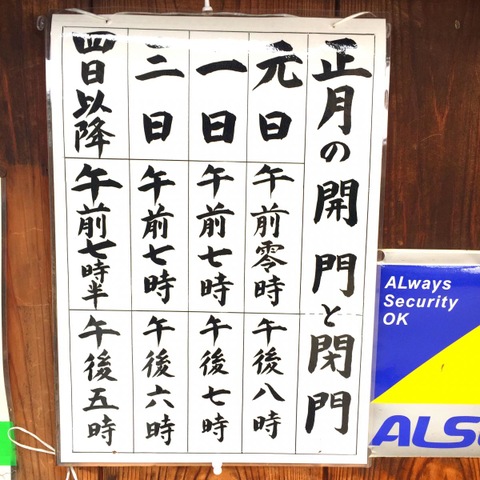 正月の開門と閉門
元日 午前零時 午後八時
一日 午前七時 午後七時
二日 午前七時 午後六時
四日以降 午前七時半 午後五時
ALways
Security
OK